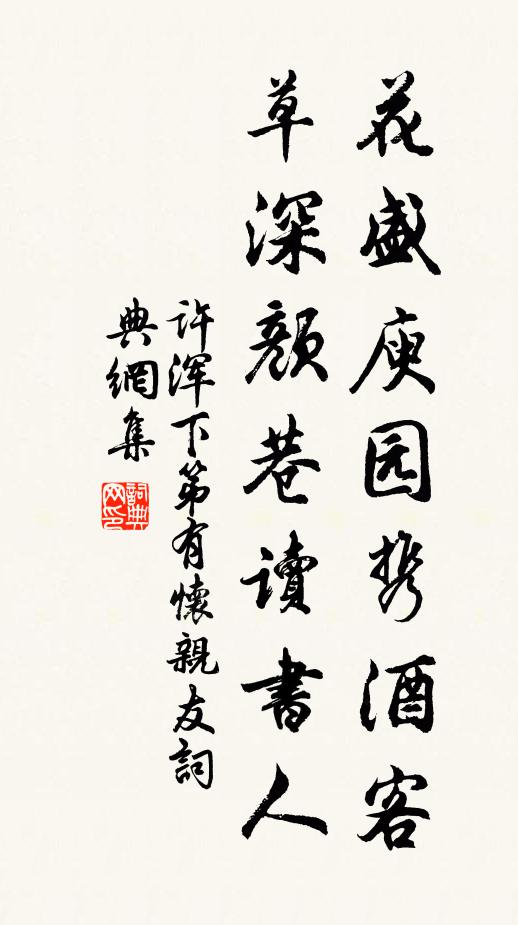 花盛庾园携酒客
草深颜巷讀書人
许浑下第有懷親友詞
典網集
詞典
网印